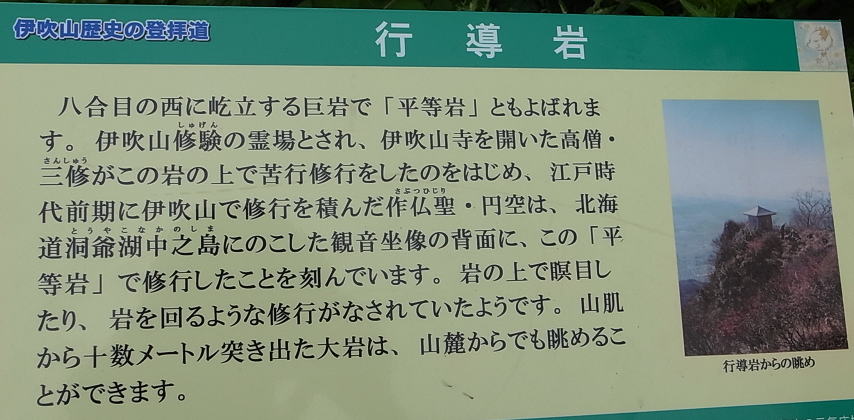 伊吹山歴史の登拝道
行導岩
八合目の西に屹立する巨岩で「平等岩」ともよばれま
しゅげん
す。伊吹山修験の霊場とされ、伊吹山寺を開いた高僧・
さんしゅう
三修がこの岩の上で苦行修行をしたのをはじめ、江戸時
さぶつひじり
代前期に伊吹山で修行を積んだ作仏聖・円空は、北海
とうやこなかのしま
道洞爺湖中之島にのこした観音坐像の背面に、この「平
等岩」で修行したことを刻んでいます。岩の上で瞑目し
たり、岩を回るような修行がなされていたようです。山肌
から十数メートル突き出た大岩は、山麓からでも眺めるこ
とができます。
行導岩からの眺め